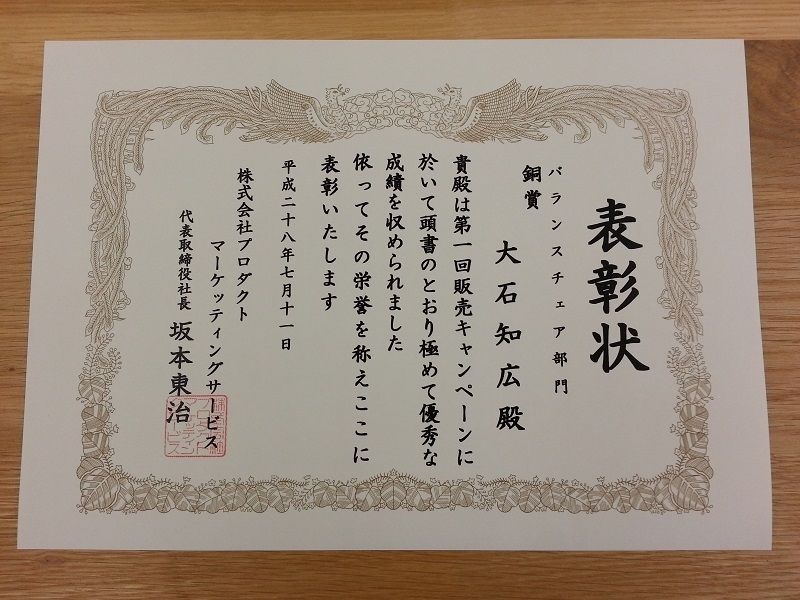 表彰状
バランスチェア部門
銅賞
大石知広殿
貴殿は第一回販売キャンペーンに
於いて頭書のとおり極めて優秀な
成績を収められました
依ってその栄誉を称えここに
表彰いたします
平成二十八年七月十一日
株式会社プロダクト
マーケッティングサービス
代表取締役社長 坂本東治